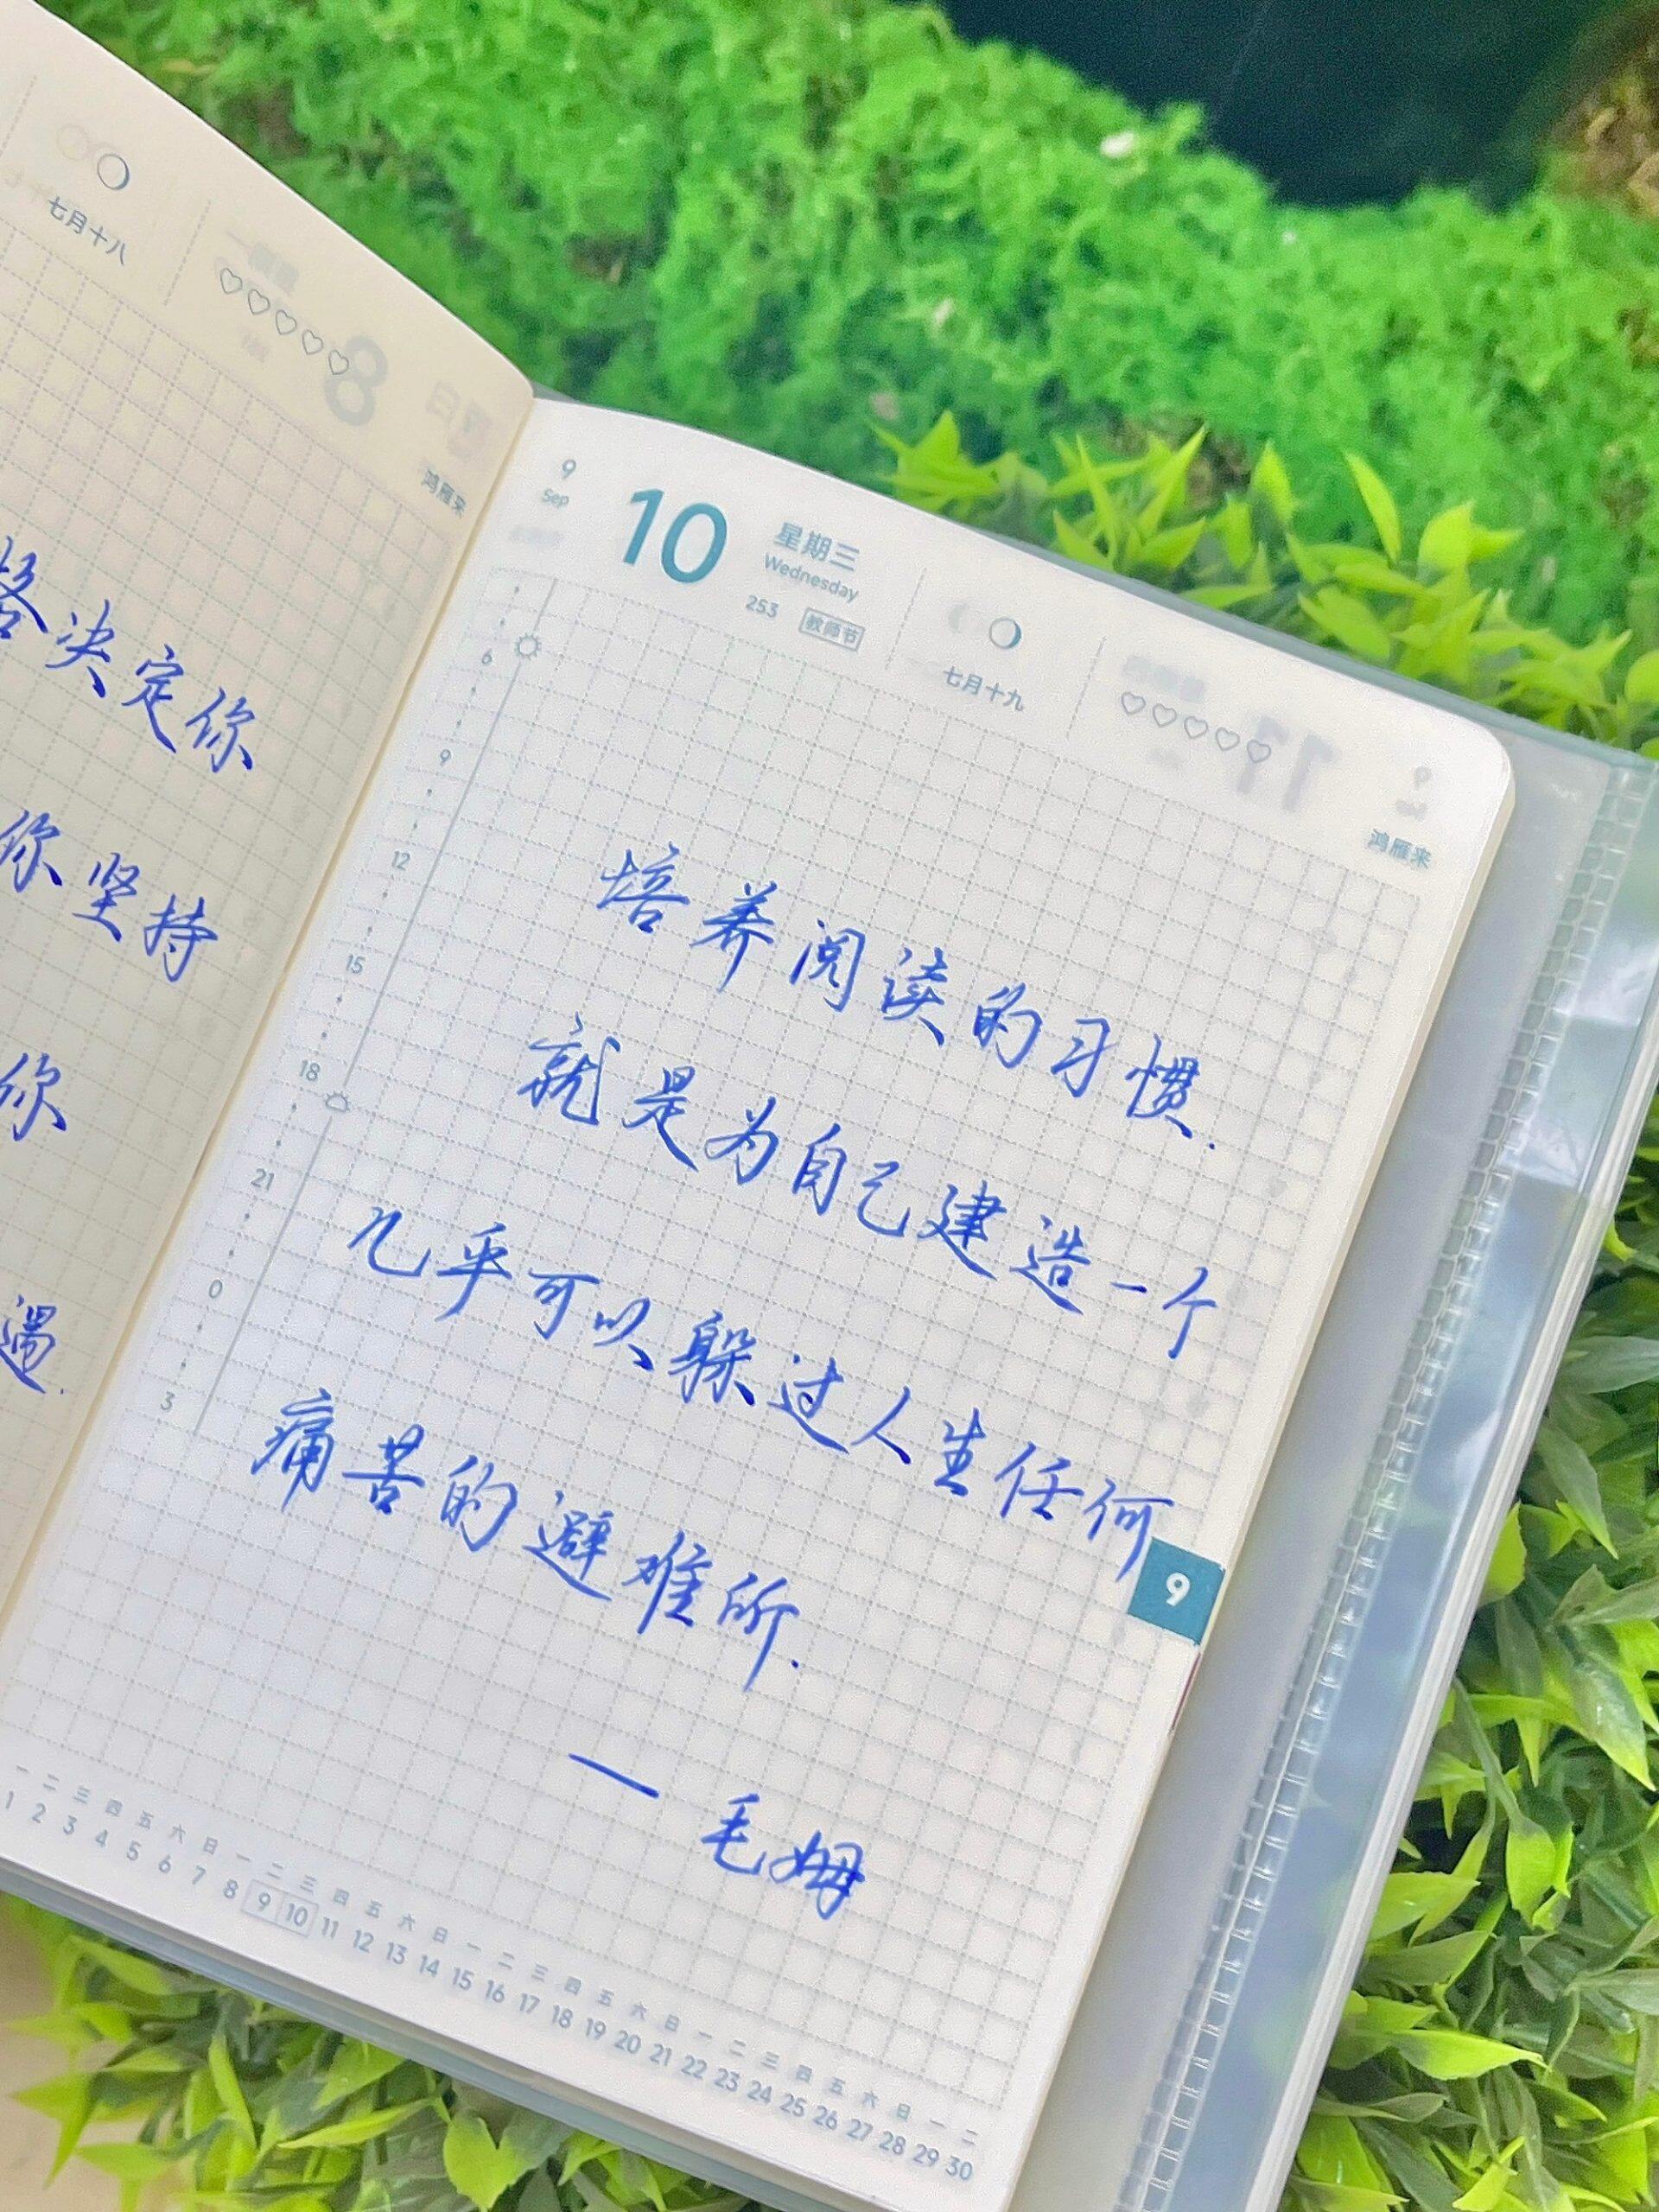 七月十八
鸿雁来
格决定你
你坚持
你
遇.
9
Sep
10
星期三
Wednesday
253
教师节
七月十九
♡♡♡♡♡
鸿雁来
6
9
12
15
18
21
0
3
培养阅读的习惯.
就是为自己建造一个
几乎可以躲过人生任何
痛苦的避难所.
— 毛姆
9
一 二 三 四 五 六 日 一 二 三 四 五 六 日 一 二 三 四 五 六 日 一 二 三 四 五 六 日 一 二
1 2 3 4 5 6 7 8 9 10 11 12 13 14 15 16 17 18 19 20 21 22 23 24 25 26 27 28 29 30